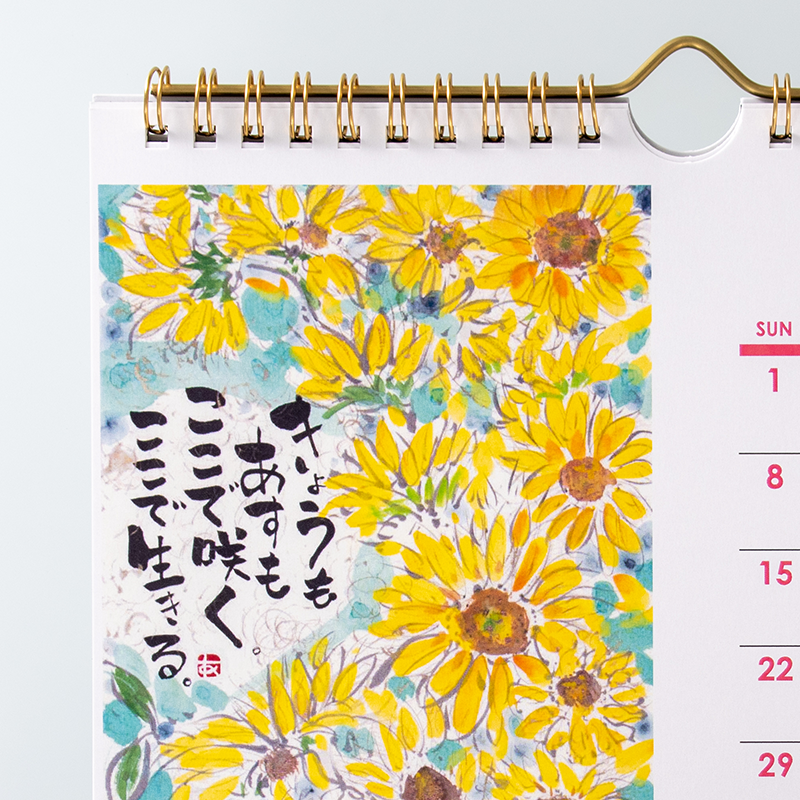 きょうも
あすも
ここで咲く。
ここで生きる。
SUN
1
8
15
22
29